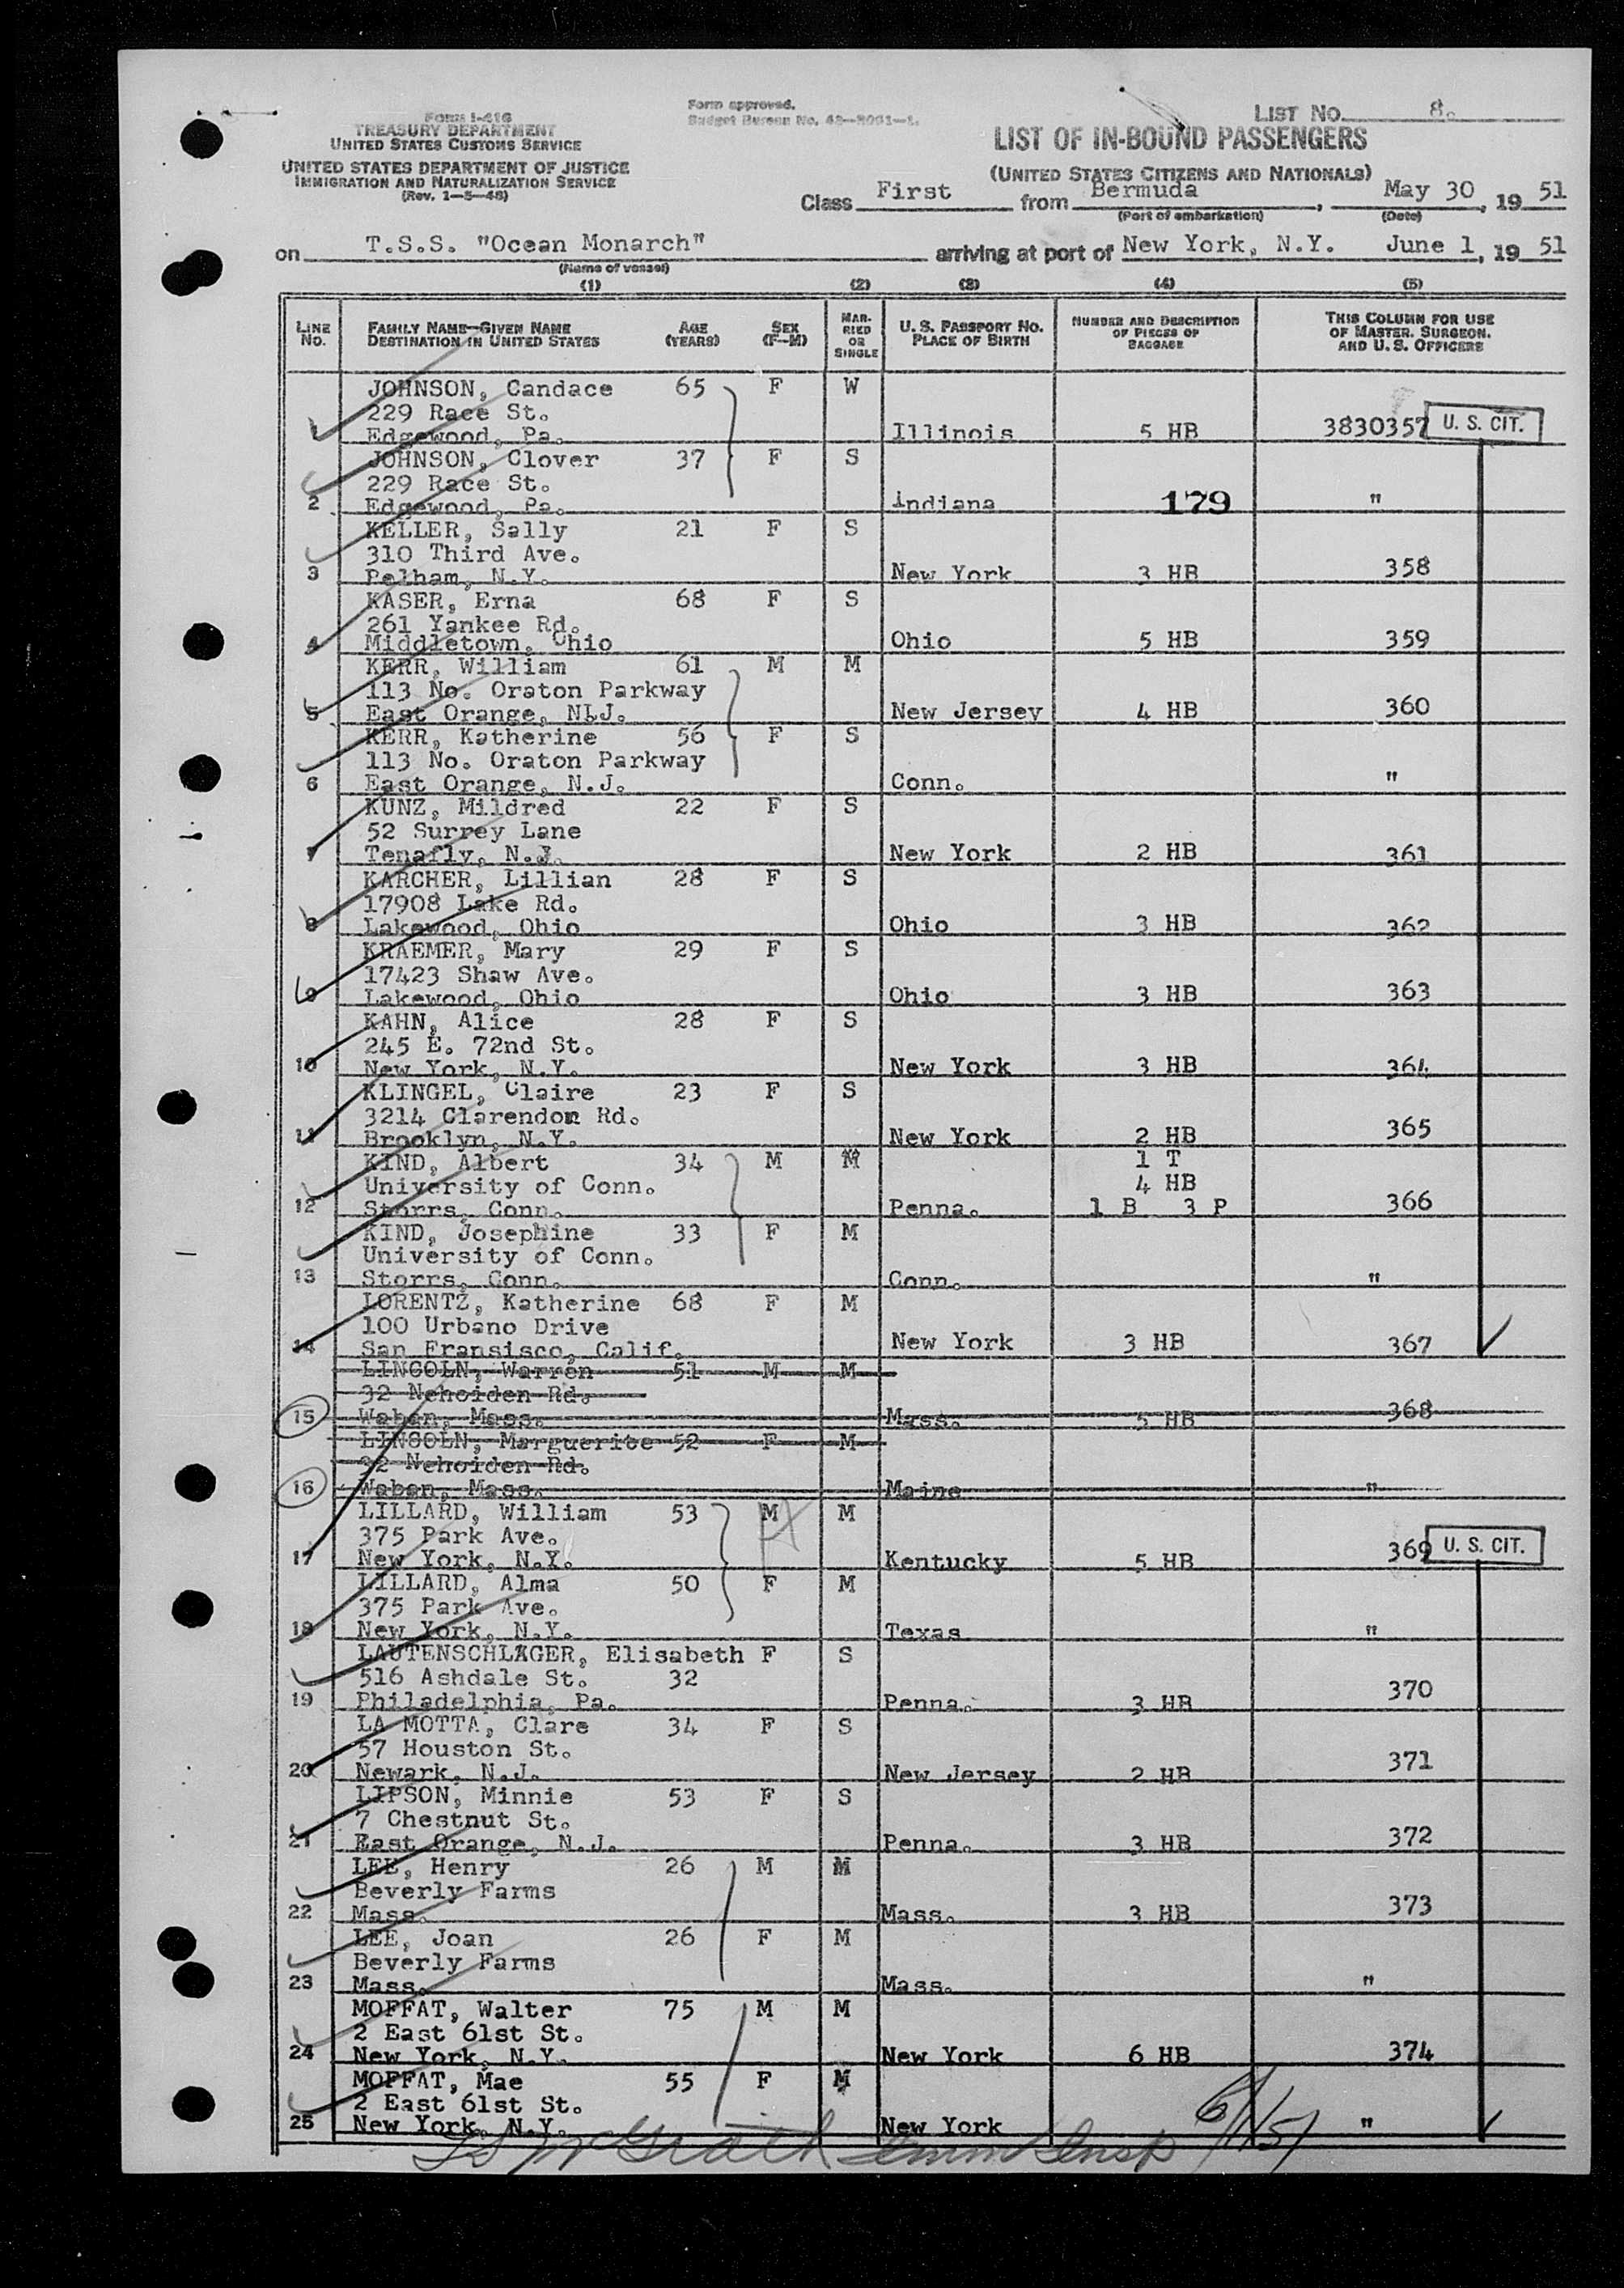 Form I-416
TREASURY DEPARTMENT
UNITED STATES CUSTOMS SERVICE
UNITED STATES DEPARTMENT OF JUSTICE
IMMIGRATION AND NATURALIZATION SERVICE
(Rev. 1-5-48)
Form approved.
Budget Bureau No.
LIST NO. 8.
LIST OF IN-BOUND PASSENGERS
(UNITED STATES CITIZENS AND NATIONALS)
Class First from Bermuda, May 30, 1951
(Port of embarkation) (Date)
on T.S.S. "Ocean Monarch" arriving at port of New York, N.Y. June 1, 1951
(Name of vessel)
(1) (2) (3) (4) (5)
LINE No. FAMILY NAME—GIVEN NAME DESTINATION IN UNITED STATES AGE (YEARS) SEX (F-M) MARRIED OR SINGLE U. S. PASSPORT NO. PLACE OF BIRTH NUMBER AND DESCRIPTION OF PIECES OF BAGGAGE THIS COLUMN FOR USE OF MASTER, SURGEON, AND U. S. OFFICERS
JOHNSON, Candace 65 F W
229 Race St.
1 Edgewood, Pa. Illinois 5 HB 3830357 U. S. CIT.
JOHNSON, Clover 37 F S
229 Race St.
2 Edgewood, Pa. Indiana 179 "
KELLER, Sally 21 F S
310 Third Ave.
3 Pelham, N.Y. New York 3 HB 358
KASER, Erna 68 F S
261 Yankee Rd.
4 Middletown, Ohio Ohio 5 HB 359
KERR, William 61 M M
113 No. Oraton Parkway
5 East Orange, NLJ. New Jersey 4 HB 360
KERR, Katherine 56 F S
113 No. Oraton Parkway
6 East Orange, N.J. Conn. "
KUNZ, Mildred 22 F S
52 Surrey Lane
7 Tenafly, N.J. New York 2 HB 361
KARCHER, Lillian 28 F S
17908 Lake Rd.
8 Lakewood, Ohio Ohio 3 HB 362
KRAEMER, Mary 29 F S
17423 Shaw Ave.
9 Lakewood, Ohio Ohio 3 HB 363
KAHN, Alice 28 F S
245 E. 72nd St.
10 New York, N.Y. New York 3 HB 364
KLINGEL, Claire 23 F S
3214 Clarendon Rd.
11 Brooklyn, N.Y. New York 2 HB 365
KIND, Albert 34 M M 1 T
University of Conn. 4 HB
12 Storrs, Conn. Penna. 1 B 3 P 366
KIND, Josephine 33 F M
University of Conn.
13 Storrs, Conn. Conn. "
LORENTZ, Katherine 68 F M
100 Urbano Drive
14 San Fransisco, Calif. New York 3 HB 367
LINCOLN, Warren 51 M M
32 Nehoiden Rd.
15 Waban, Mass. Mass. 5 HB 368
LINCOLN, Marguerite 52 F M
32 Nehoiden Rd.
16 Waban, Mass. Maine "
LILLARD, William 53 M M
375 Park Ave.
17 New York, N.Y. Kentucky 5 HB 369 U. S. CIT.
LILLARD, Alma 50 F M
375 Park Ave.
18 New York, N.Y. Texas "
LAUTENSCHLAGER, Elisabeth F S
516 Ashdale St. 32
19 Philadelphia, Pa. Penna. 3 HB 370
LA MOTTA, Clare 34 F S
57 Houston St.
20 Newark, N.J. New Jersey 2 HB 371
LIPSON, Minnie 53 F S
7 Chestnut St.
21 East Orange, N.J. Penna. 3 HB 372
LEE, Henry 26 M M
Beverly Farms
22 Mass. Mass. 3 HB 373
LEE, Joan 26 F M
Beverly Farms
23 Mass. Mass. "
MOFFAT, Walter 75 M M
2 East 61st St.
24 New York, N.Y. New York 6 HB 374
MOFFAT, Mae 55 F M
2 East 61st St.
25 New York, N.Y. New York "
McGrath Immn Insp 6/1/51